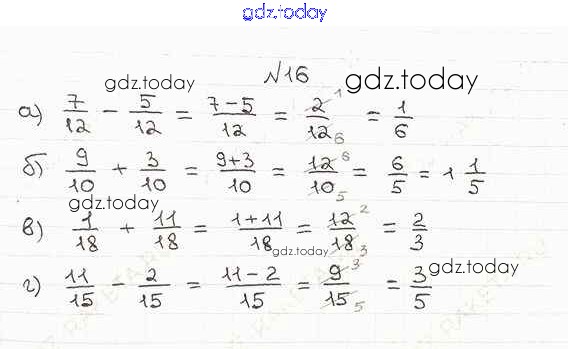 gdz.today
№16 gdz.today
gdz.today
а) 7/12 - 5/12 = 7-5/12 = 2 1/12 6 = 1/6
б) 9/10 + 3/10 = 9+3/10 = 12 6/10 5 = 6/5 = 1 1/5
gdz.today
в) 1/18 + 11/18 = 1+11/18 = 12 2/18 3 = 2/3
gdz.today
г) 11/15 - 2/15 = 11-2/15 = 9 3/15 5 = 3/5
gdz.today